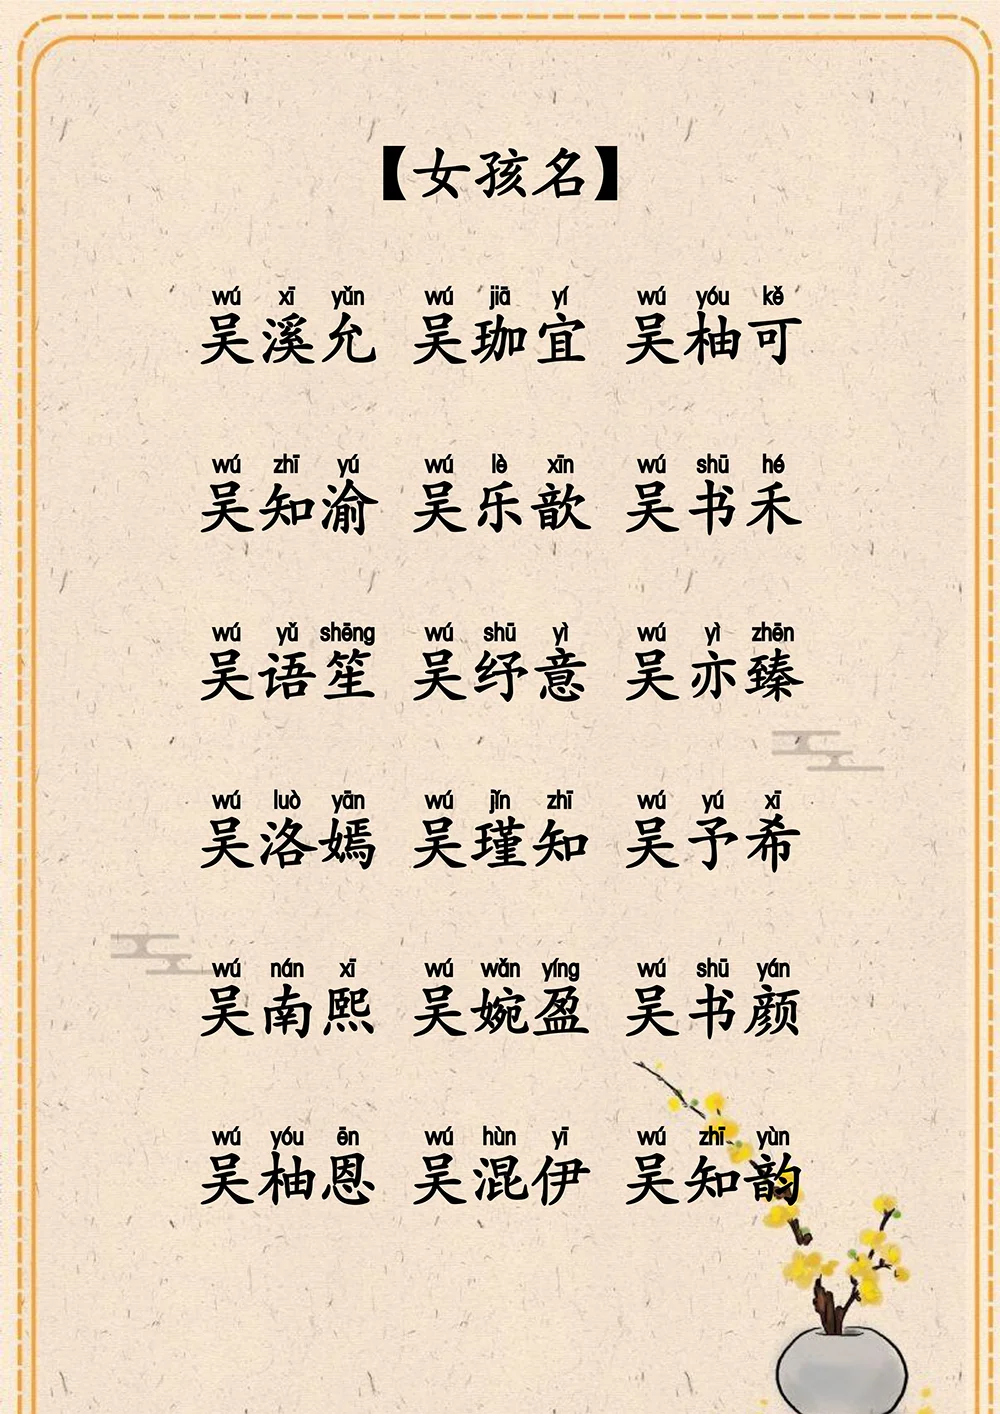 【女孩名】
wú xī yǔn wú jiā yí wú yóu kě
吴溪允 吴珈宜 吴柚可
wú zhī yú wú lè xīn wú shū hé
吴知渝 吴乐歆 吴书禾
wú yǔ shēng wú shū yì wú yì zhēn
吴语笙 吴纾意 吴亦臻
wú luò yān wú jǐn zhī wú yú xī
吴洛嫣 吴瑾知 吴予希
wú nán xī wú wǎn yíng wú shū yán
吴南熙 吴婉盈 吴书颜
wú yóu ēn wú hùn yī wú zhī yùn
吴柚恩 吴混伊 吴知韵